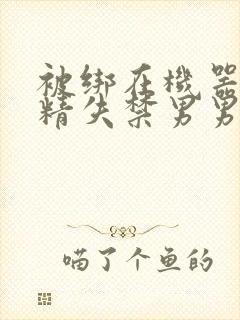 被绑在機器
精失禁男男
喵了个鱼的